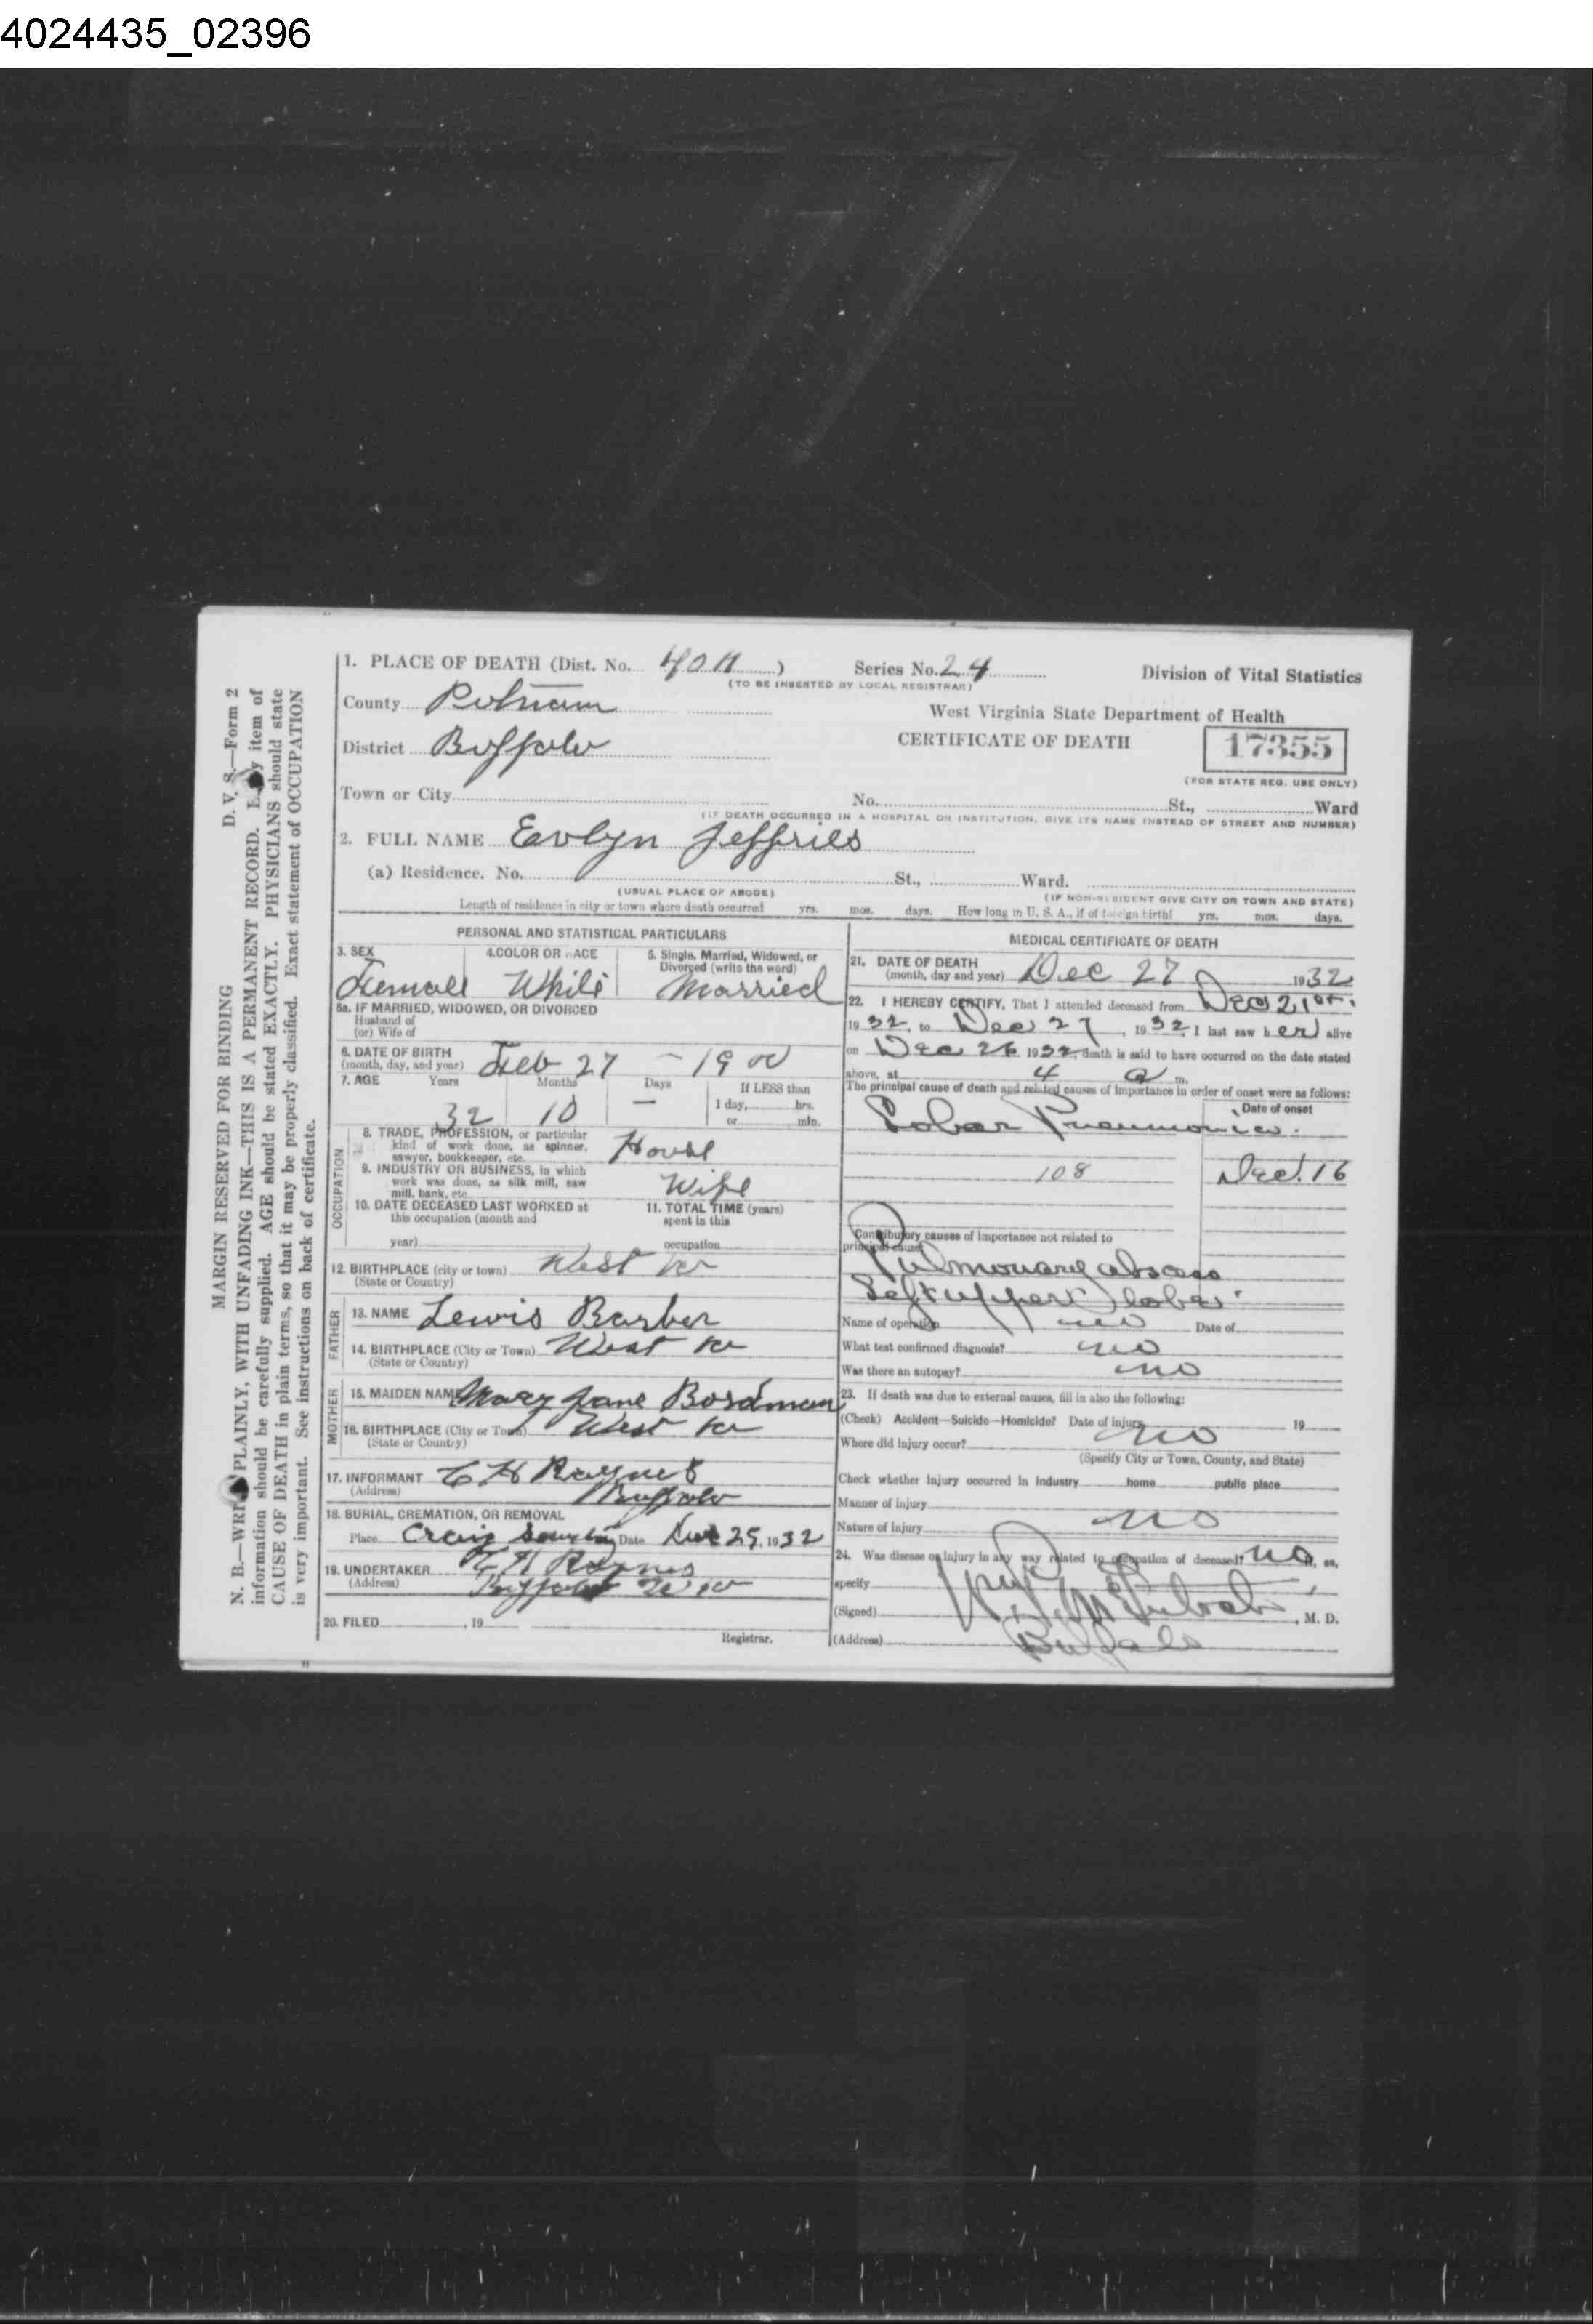 4024435_02396
MARGIN RESERVED FOR BINDING D. V. S.—Form 2
N. B.—WRITE PLAINLY, WITH UNFADING INK—THIS IS A PERMANENT RECORD. Every item of
information should be carefully supplied. AGE should be stated EXACTLY. PHYSICIANS should state
CAUSE OF DEATH in plain terms, so that it may be properly classified. Exact statement of OCCUPATION
is very important. See instructions on back of certificate.
1. PLACE OF DEATH (Dist. No. 4011) Series No. 24 Division of Vital Statistics
(TO BE INSERTED BY LOCAL REGISTRAR)
County Putnam West Virginia State Department of Health
District Buffalo CERTIFICATE OF DEATH 17355
(FOR STATE REG. USE ONLY)
Town or City No. St., Ward
(IF DEATH OCCURRED IN A HOSPITAL OR INSTITUTION, GIVE ITS NAME INSTEAD OF STREET AND NUMBER)
2. FULL NAME Evlyn Jeffries
(a) Residence. No. St., Ward.
(USUAL PLACE OF ABODE) (IF NON-RESIDENT GIVE CITY OR TOWN AND STATE)
Length of residence in city or town where death occurred yrs. mos. days. How long in U. S. A., if of foreign birth? yrs. mos. days.
PERSONAL AND STATISTICAL PARTICULARS
3. SEX 4. COLOR OR RACE 5. Single, Married, Widowed, or
Divorced (write the word)
Femall White Married
5a. IF MARRIED, WIDOWED, OR DIVORCED
Husband of
(or) Wife of
6. DATE OF BIRTH
(month, day, and year) Feb 27 – 1900
7. AGE Years Months Days If LESS than
1 day, hrs.
or min.
32 10 —
OCCUPATION
8. TRADE, PROFESSION, or particular
kind of work done, as spinner,
sawyer, bookkeeper, etc. House
9. INDUSTRY OR BUSINESS, in which
work was done, as silk mill, saw
mill, bank, etc. Wife
10. DATE DECEASED LAST WORKED at
this occupation (month and
year)
11. TOTAL TIME (years)
spent in this
occupation
12. BIRTHPLACE (city or town) West Va
(State or Country)
FATHER
13. NAME Lewis Barber
14. BIRTHPLACE (City or Town) West Va
(State or Country)
MOTHER
15. MAIDEN NAME Mary Jane Bordman
16. BIRTHPLACE (City or Town) West Va
(State or Country)
17. INFORMANT C H Raynes
(Address) Buffalo
18. BURIAL, CREMATION, OR REMOVAL
Place Craig Date 1932
19. UNDERTAKER C H Raynes
(Address) Buffalo W Va
20. FILED , 19
Registrar.
MEDICAL CERTIFICATE OF DEATH
21. DATE OF DEATH
(month, day and year) Dec 27 1932
22. I HEREBY CERTIFY, That I attended deceased from Dec 21st.
1932, to Dec 27, 1932, I last saw her alive
on Dec 26 1932, death is said to have occurred on the date stated
above, at 4 a m.
The principal cause of death and related causes of importance in order of onset were as follows:
Date of onset
Lobar Pneumonia.
108 Dec. 16
Contributory causes of importance not related to
principal cause:
Pulmonary abscess
Left upper lobe.
Name of operation no Date of
What test confirmed diagnosis? no
Was there an autopsy? no
23. If death was due to external causes, fill in also the following:
(Check) Accident—Suicide—Homicide? Date of injury 19
no
Where did injury occur?
(Specify City or Town, County, and State)
Check whether injury occurred in industry home public place
Manner of injury
no
Nature of injury
24. Was disease or injury in any way related to occupation of deceased? no If, so,
specify
(Signed) , M. D.
(Address) Buffalo